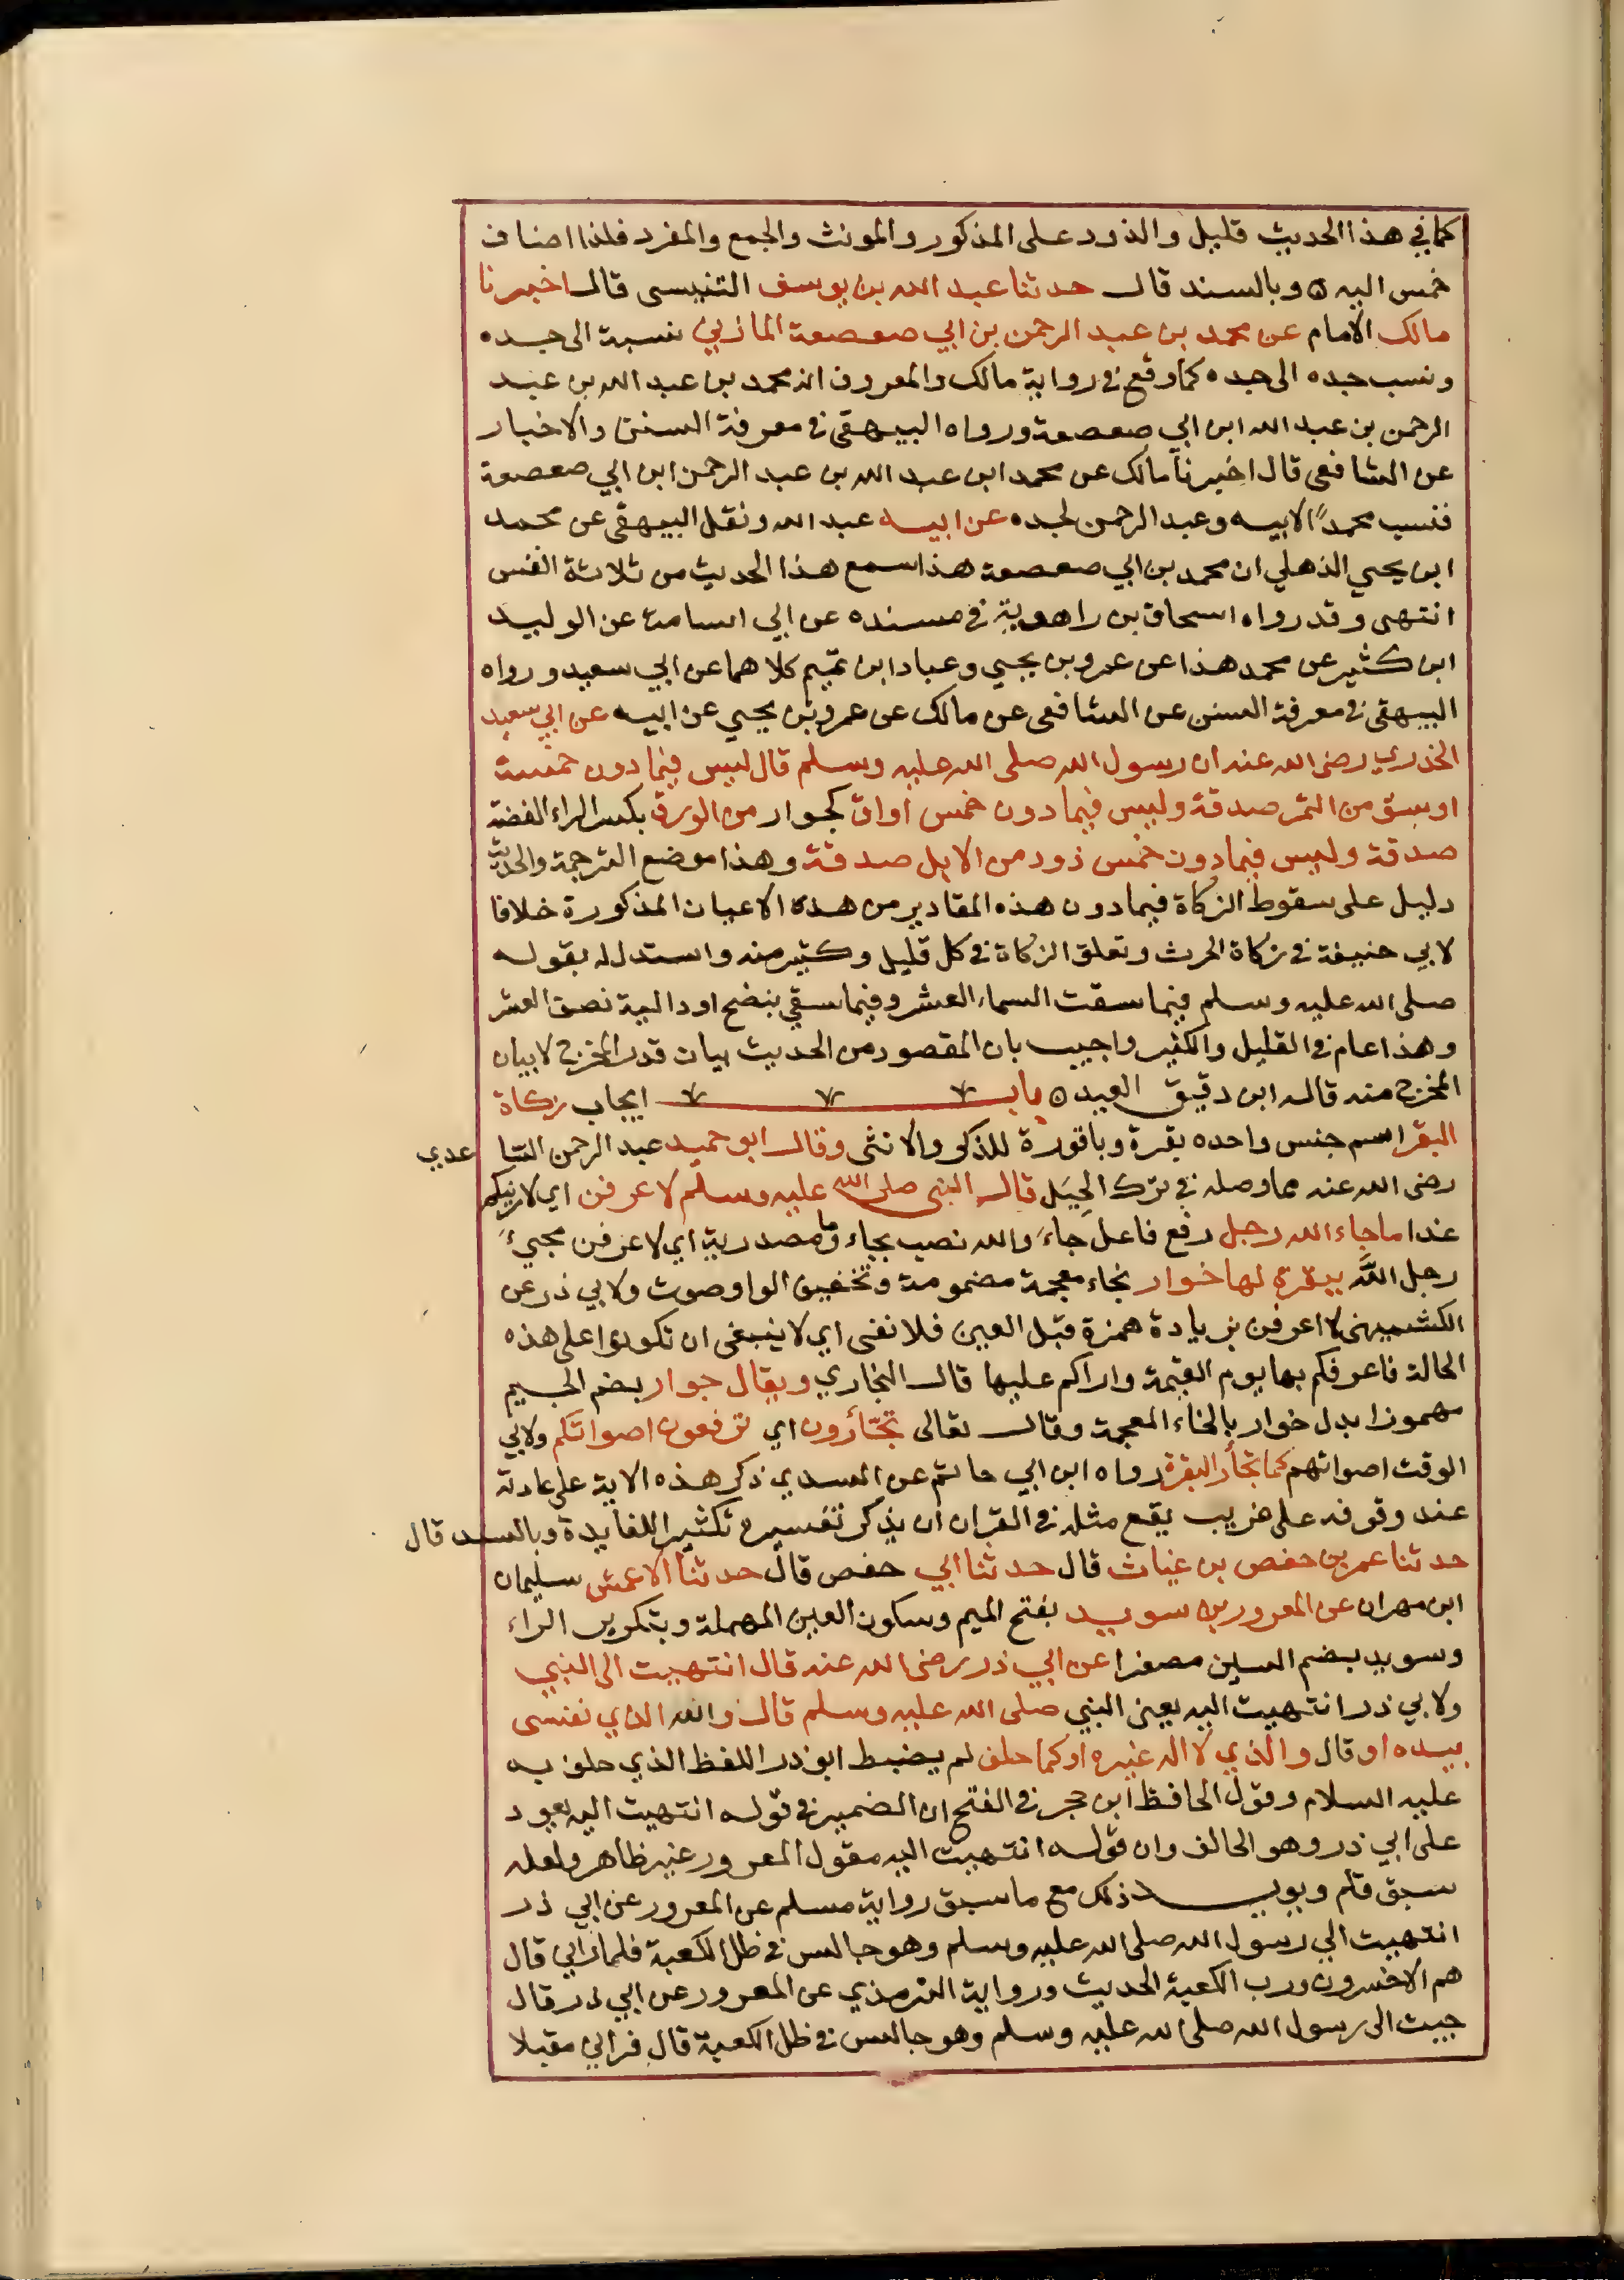 كما في هذا الحديث قليل والذود على المذكور والمونث والجمع والمفرد فلذا اضاف
خمس اليه ه وبالسند قال حدثنا عبد الله بن يوسف التنيسى قال اخبرنا
مالك الامام عن محمد بن عبد الرحمن بن ابي صعصعة المازني نسبة الى جده
ونسب جده الى جده كما وقع في رواية مالك والمعروف انه محمد بن عبد الله بن عبد
الرحمن بن عبد الله ابن ابي صعصعة ورواه البيهقى في معرفة السنن والاخبار
عن الشافعى قال اخبرنا مالك عن محمد ابن عبد الله بن عبد الرحمن ابن ابي صعصعة
فنسب محمدًا لابيه وعبد الرحمن لجده عن ابيه عبد الله ونقل البيهقى عن محمد
ابن يحيى الذهلي ان محمد بن ابي صعصعة هذا سمع هذا الحديث من ثلاثة انفس
انتهى وقد رواه اسحاق بن راهوية في مسنده عن ابي اسامة عن الوليد
ابن كثير عن محمد هذا عن عمرو بن يحيي وعباد ابن تميم كلاهما عن ابي سعيد ورواه
البيهقى في معرفة السنن عن الشافعى عن مالك عن عمرو بن يحيي عن ابيه عن ابي سعيد
الخدري رضى الله عنه ان رسول الله صلى الله عليه وسلم قال ليس فيما دون خمسة
اوسق من التمر صدقة وليس فيما دون خمس اواق كجوار من الورق بكسر الراء الفضة
صدقة وليس فيما دون خمس ذود من الابل صدقة وهذا موضع الترجمة والحديث
دليل على سقوط الزكاة فيما دون هذه المقادير من هذه الاعيان المذكورة خلافا
لابي حنيفة في زكاة الحرث وتعلق الزكاة في كل قليل وكثير منه واستدل له بقوله
صلى الله عليه وسلم فيما سقت السماء العشر وفيما سقي بنضح او دالية نصف العشر
وهذا عام في القليل والكثير واجيب بان المقصود من الحديث بيان قدر المخرج لا بيان
المخرج منه قاله ابن دقيق العيد ه باب ايجاب زكاة
البقر اسم جنس واحده بقرة وباقورة للذكر والانثى وقال ابو حميد عبد الرحمن الساعدي
رضى الله عنه مما وصله في ترك الحِيَل قال النبى صلى الله عليه وسلم لاعرفن اي لارينكم
غدا ما جاء الله رجل رفع فاعل جاء والله نصب بجاء وما مصدرية اي لاعرفن مجيء
رجل اللَّه ببقرة لها خوار بخاء معجمة مضمومة وتخفيف الواو صوت ولابي ذر عن
الكشميهنى لا اعرفن بزيادة همزة قبل العين فلا نفى اي لا ينبغى ان تكونوا على هذه
الحالة فاعرفكم بها يوم القيمة واراكم عليها قال البخاري ويقال جوار بضم الجيم
مهموزا بدل خوار بالخاء المعجمة وقال تعالى تجئرون اي ترفعون اصواتكم ولابي
الوقت اصواتهم كما تجأر البقرة رواه ابن ابي حاتم عن السدي ذكر هذه الاية على عادته
عند وقوفه على غريب يقع مثله في القران ان يذكر تفسيره تكثيرا للفايدة وبالسند قال
حدثنا عمر بن حفص بن غياث قال حدثنا ابي حفص قال حدثنا الاعمش سليمان
ابن مهران عن المعرور بن سويد بفتح الميم وسكون العين المهملة وبتكرير الراء
وسويد بضم السين مصغرا عن ابي ذر رضى الله عنه قال انتهيت الى النبي
ولابي ذر انتهيت اليه يعني النبي صلى الله عليه وسلم قال والله الذي نفسى
بيده او قال والذي لا اله غيره او كما حلف لم يضبط ابو ذر اللفظ الذي حلف به
عليه السلام وقول الحافظ ابن حجر في الفتح ان الضمير في قوله انتهيت اليه يعود
على ابي ذر وهو الحالف وان قوله انتهيت اليه مقول المعرور غير ظاهر ولعله
سبق قلم ويويد ذلك مع ما سبق رواية مسلم عن المعرور عن ابي ذر
انتهيت الي رسول الله صلى الله عليه وسلم وهو جالس في ظل الكعبة فلما راني قال
هم الاخسرون ورب الكعبة الحديث ورواية الترمذي عن المعرور عن ابي ذر قال
جيت الى رسول الله صلى الله عليه وسلم وهو جالس في ظل الكعبة قال فراني مقبلا